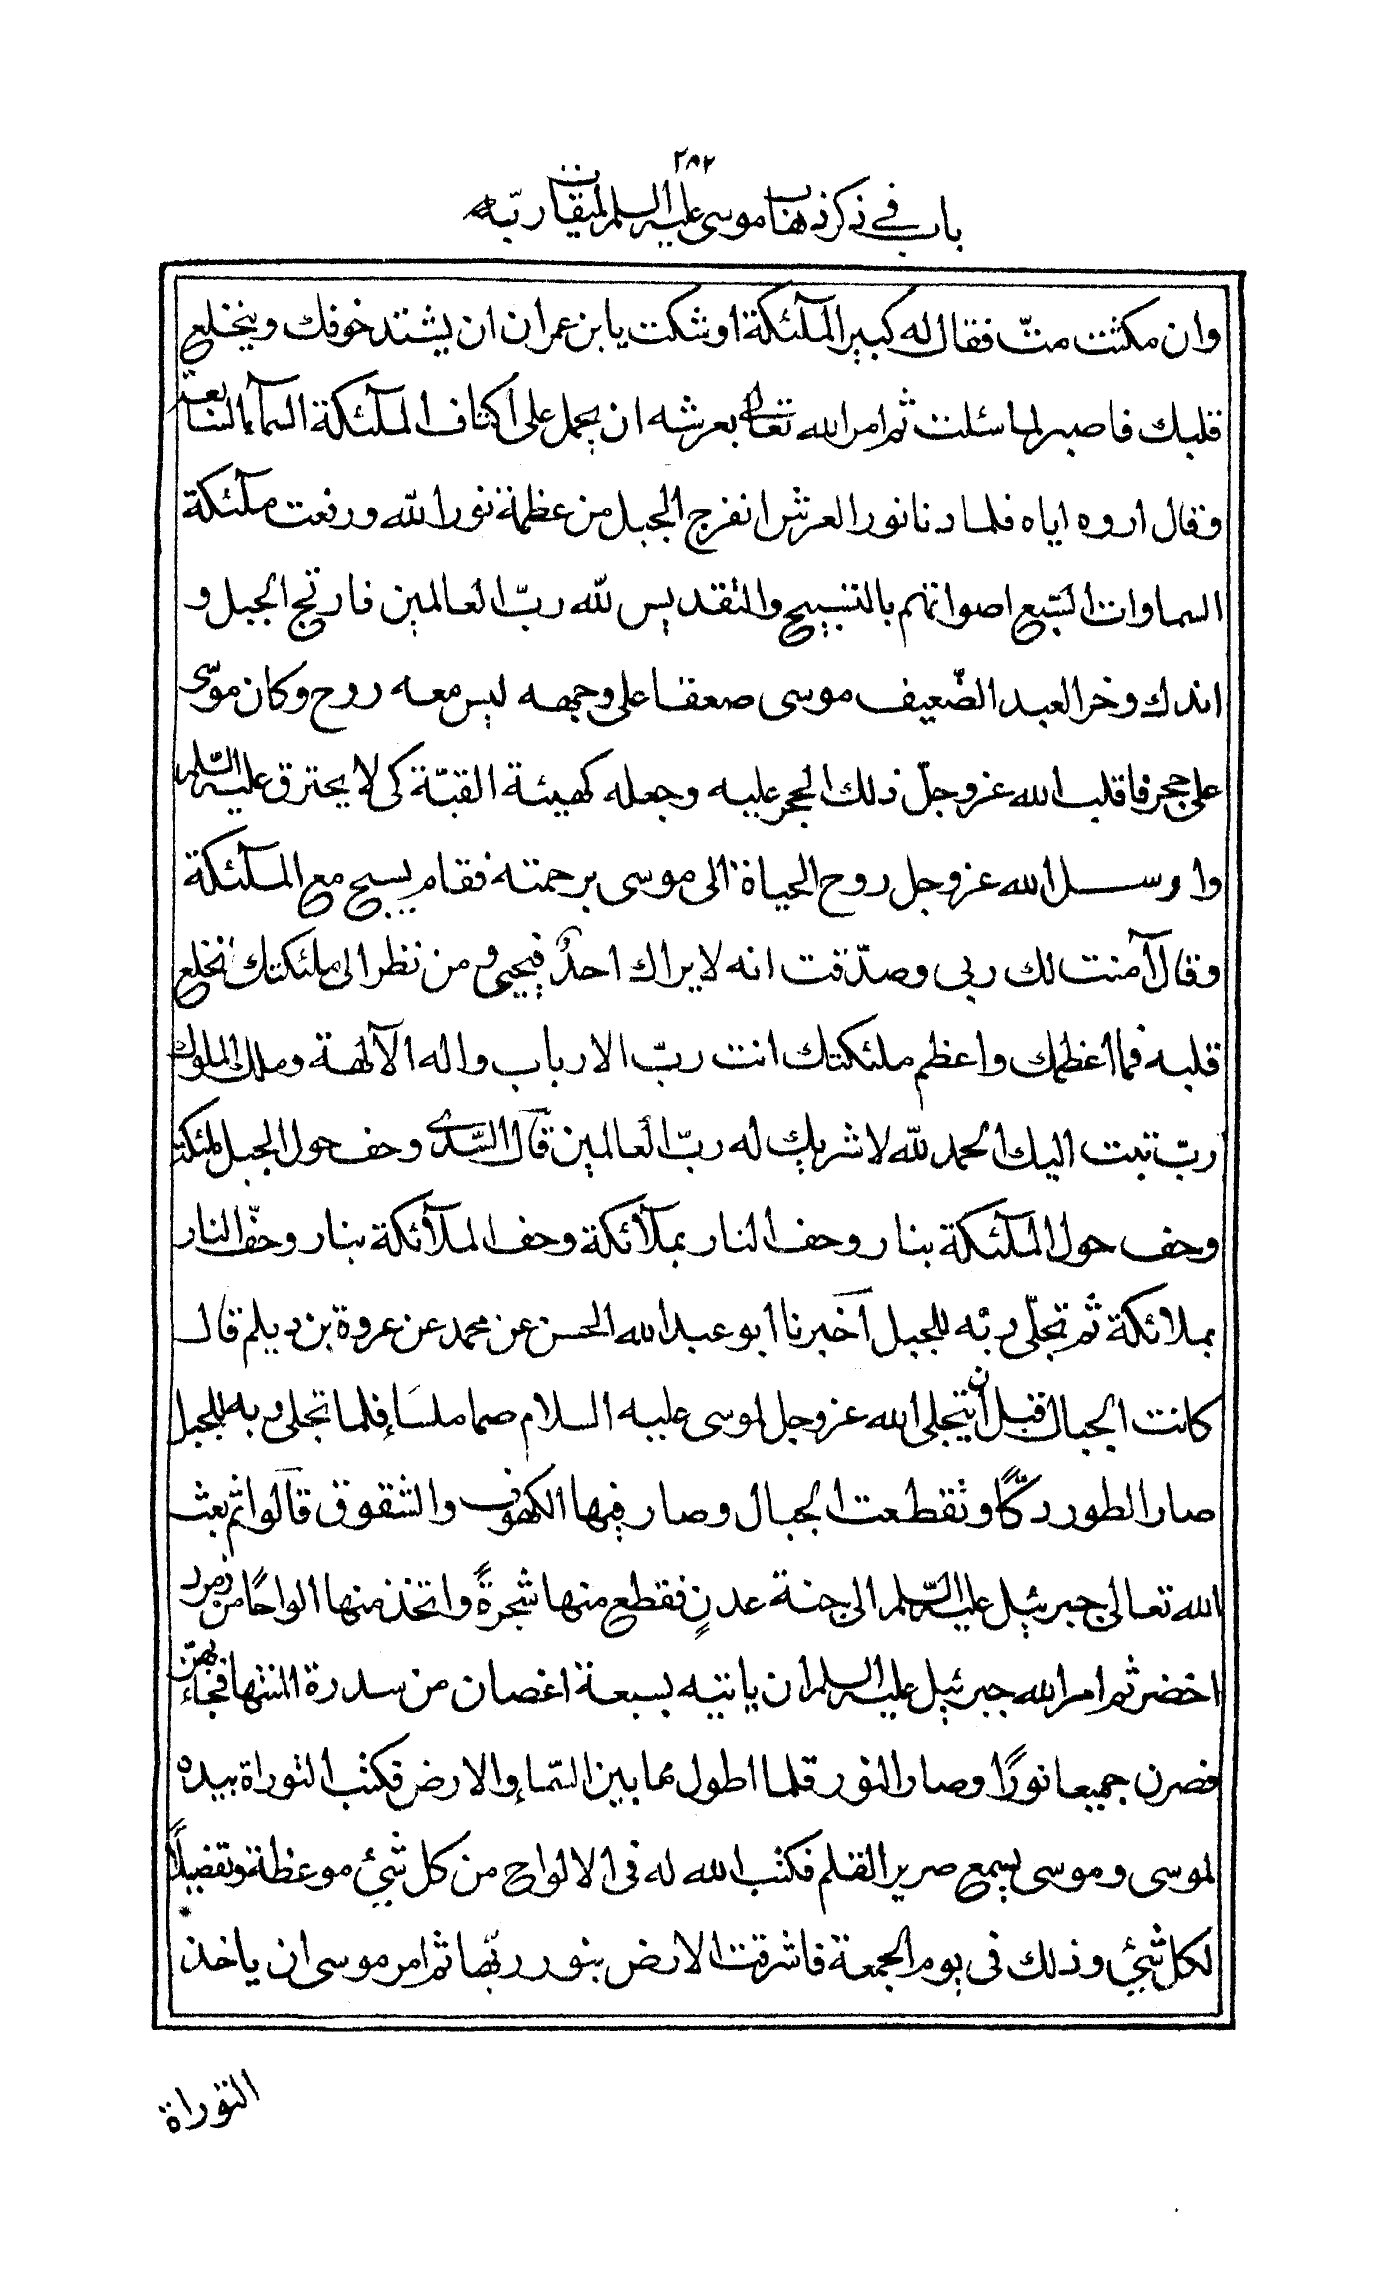 ٢٨٢
باب في ذكر ذهاب موسى عليه السلم لميقات ربّه
وان مكثت متّ فقال له كبير الملئكة اوشكت يا بن عمران ان يشتد خوفك وينخلع
قلبك فاصبر لما سئلت ثم امر الله تعالى بعرشه ان يحمل على اكتاف الملئكة السمآء السابعة
وقال اروه اياه فلما دنا نور العرش انفرج الجبل من عظمة نور الله ورفعت ملئكة
السماوات السّبع اصواتهم بالتسبيح والتقديس لله ربّ العالمين فارتج الجبل و
اندك وخر العبد الضّعيف موسى صعقا على وجهه ليس معه روح وكان موسى
على حجر فاقلب الله عز وجلّ ذلك الحجر عليه وجعله كهيئة القبّة كى لا يحترق عليه السّلم
وارسل الله عز وجل روح الحياة الى موسى برحمته فقام يسبح مع الملئكة
وقال آمنت لك ربى وصدّقت انه لا يراك احدٌ فيحيى ومن نظر الى ملئكتك انخلع
قلبه فما اعظمك واعظم ملئكتك انت ربّ الارباب واله الآلهة وملك الملوك
ربّ تبت اليك الحمد لله لا شريك له ربّ العالمين قال السّدى وحف حول الجبل بملئكة
وحف حول الملئكة بنار وحف النار بملآئكة وحف الملآئكة بنار وحفّ النار
بملائكة ثم تجلّى ربّه للجبل اخبرنا ابو عبد الله الحسن عن محمد عن عروة بن ديلم قال
كانت الجبال قبل ان يتجلى الله عز وجل لموسى عليه السلام صما ملسَاءِ فلما تجلى ربه للجبل
صار الطور دكًّا وتقطعت الجبال وصار فيها الكهوف والشقوق قالوا ثم بعث
الله تعالى جبرئيل عليه السّلم الى جنة عدنٍ فقطع منها شجرةً واتخذ منها الواحًا من زمرد
اخضر ثم امر الله جبرئيل عليه السلم ان ياتيه بسبعة اغصان من سدرة المنتها فجاء بهنّ
فصرن جميعا نورًا وصار النور قلما اطول مما بين السّماءِ والارض فكتب التوراة بيده
لموسى وموسى يسمع صرير القلم فكتب الله له فى الالواح من كل شيئ موعظة وتفضيلاً
لكل شيئ وذلك فى يوم الجمعة فاشرقت الارض بنور ربّها ثم امر موسى ان ياخذ
التوراة